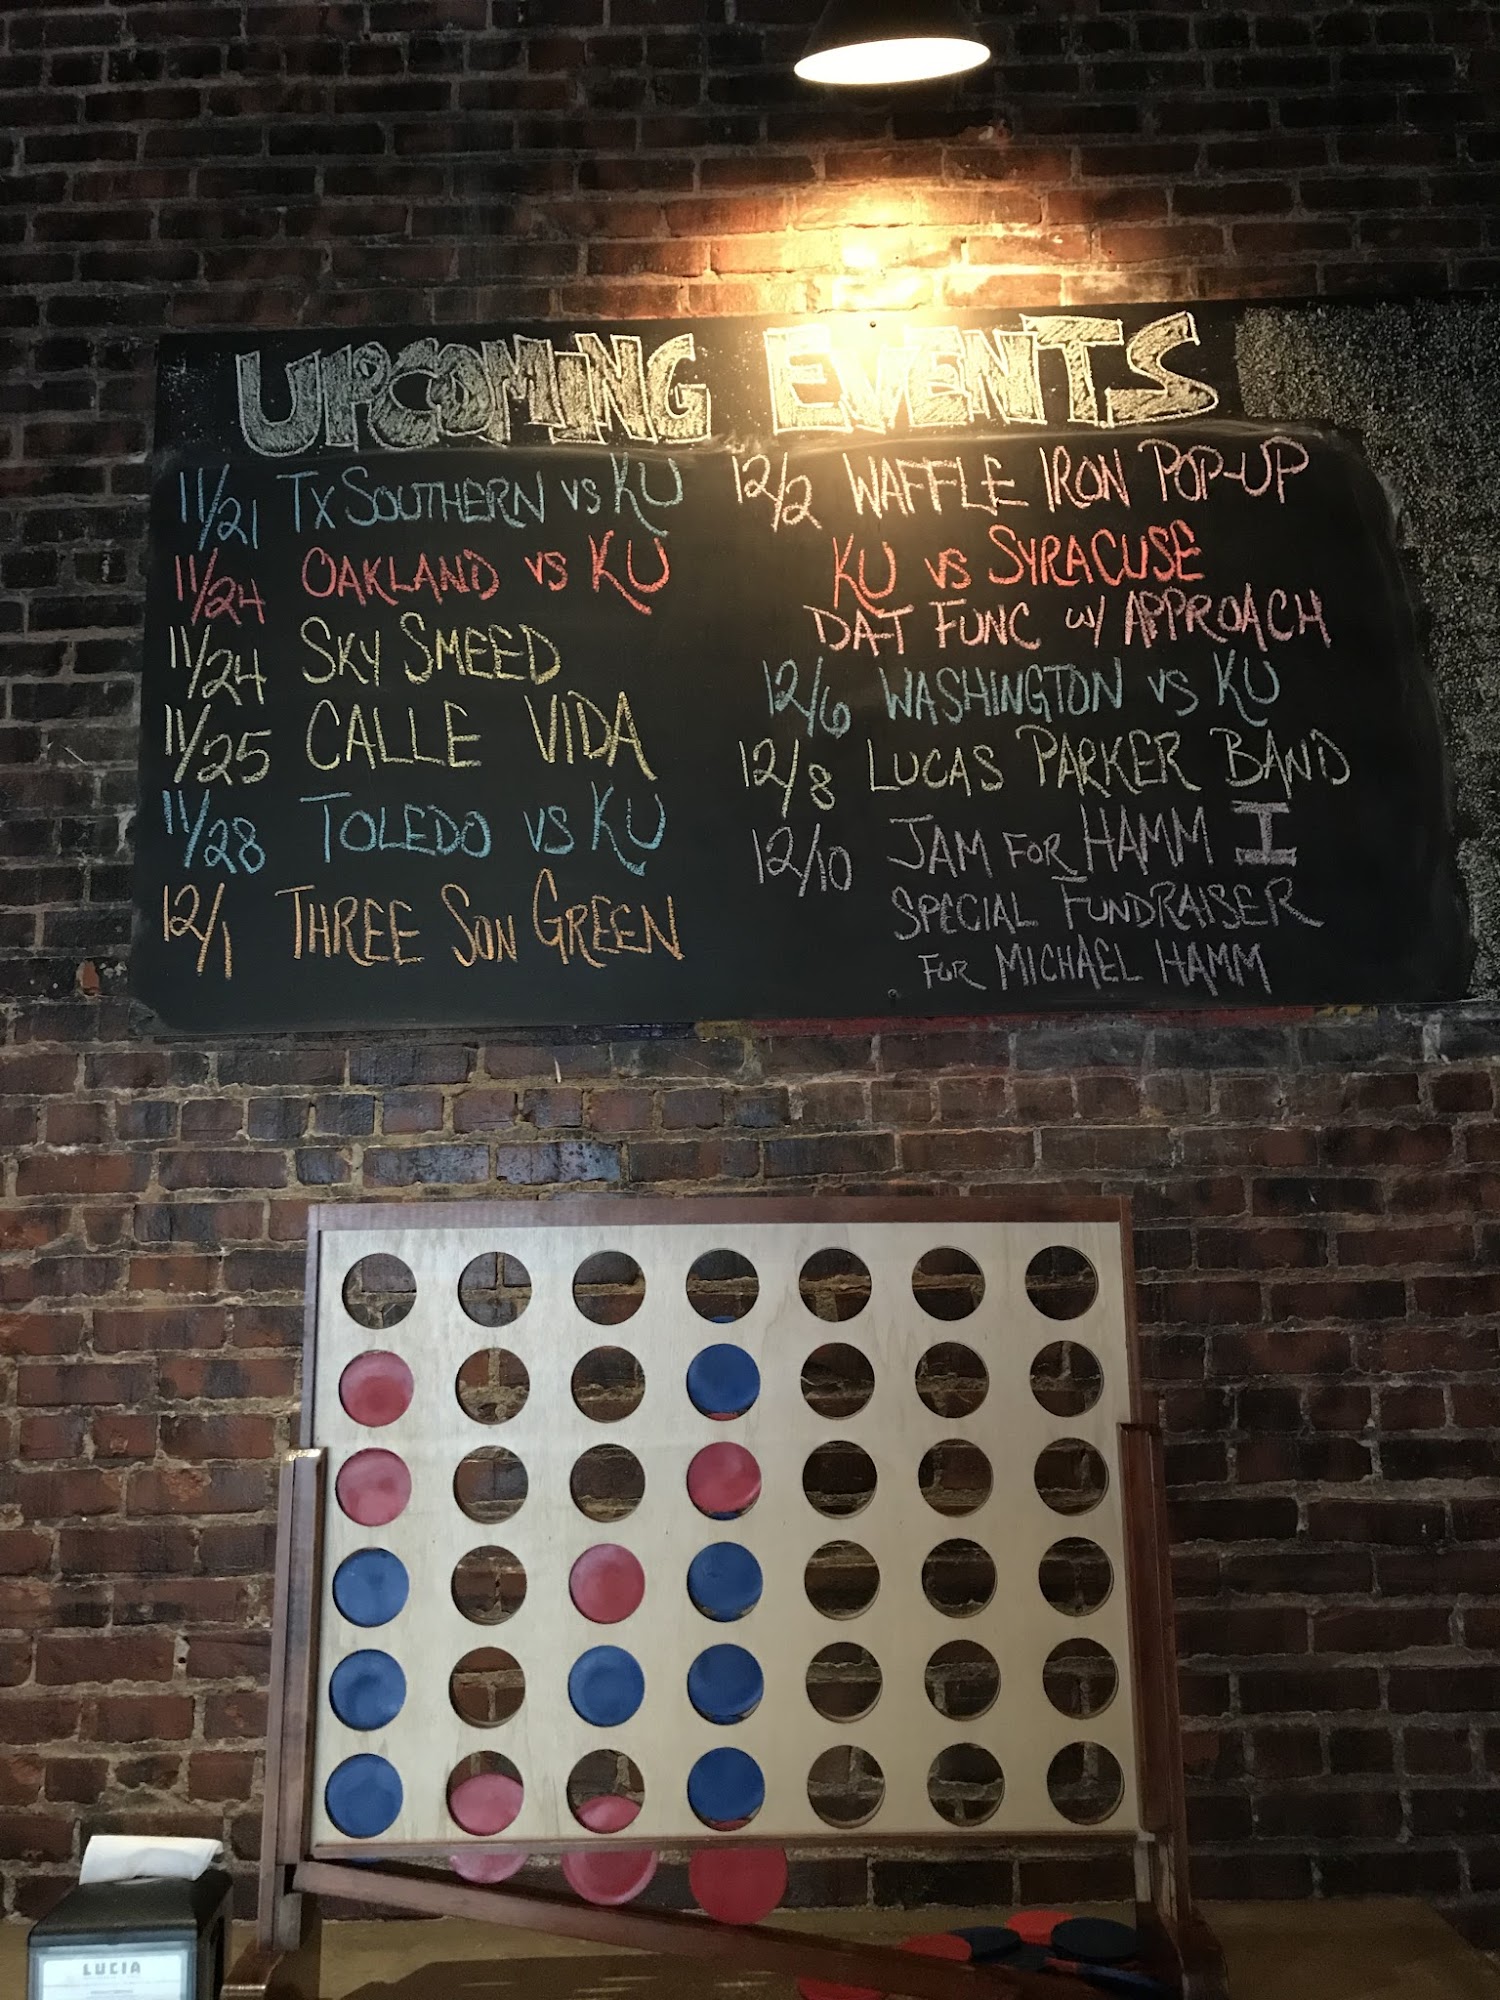 UPCOMING EVENTS
11/21 TX SOUTHERN VS KU
11/24 OAKLAND VS KU
11/24 SKY SMEED
11/25 CALLE VIDA
11/28 TOLEDO VS KU
12/1 THREE SON GREEN
12/2 WAFFLE IRON POP-UP
KU VS SYRACUSE
DAT FUNC W/ APPROACH
12/6 WASHINGTON VS KU
12/8 LUCAS PARKER BAND
12/10 JAM FOR HAMM I
SPECIAL FUNDRAISER
FOR MICHAEL HAMM
LUCIA